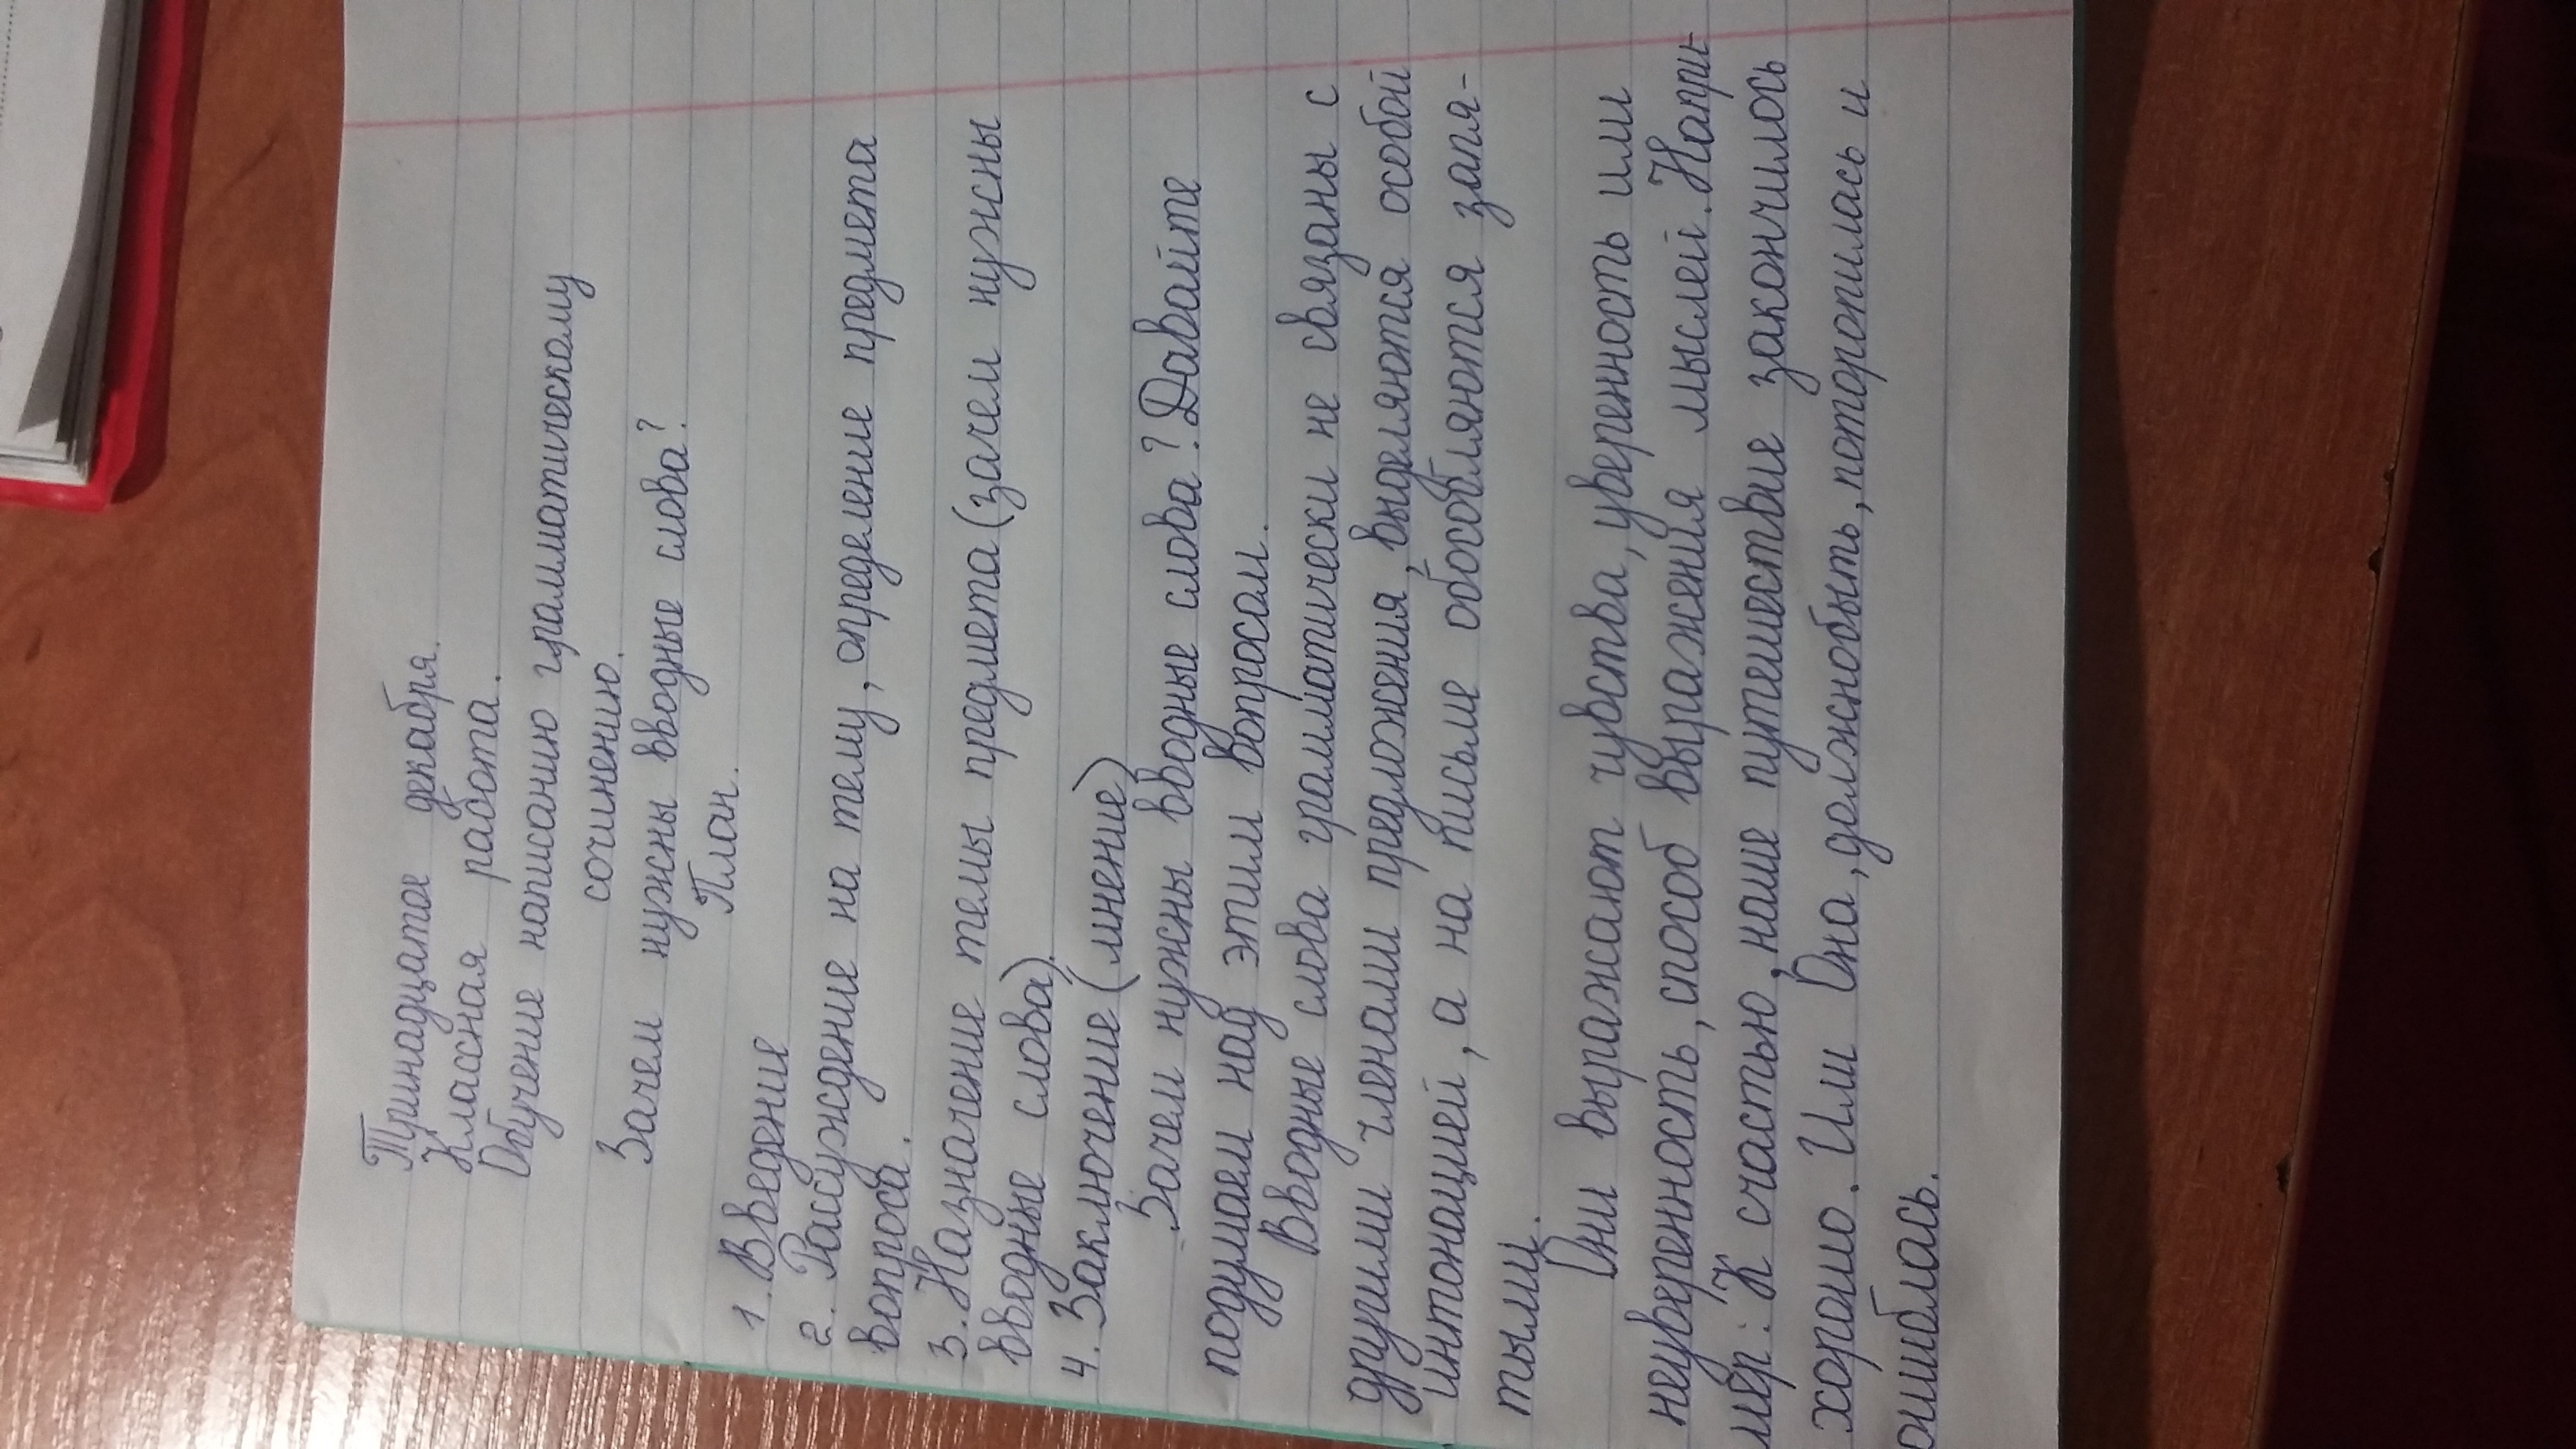 Тринадцатое декабря.
Классная работа.
Обучение написанию грамматическому
сочинению.
Зачем нужны вводные слова?
План.
1. Введение
2. Рассуждение на тему, определение предмета
вопроса.
3. Назначение темы предмета (зачем нужны
вводные слова).
4. Заключение (мнение)
Зачем нужны вводные слова? Давайте
подумаем над этим вопросом.
Вводные слова грамматически не связаны с
другими членами предложения, выделяются особой
интонацией, а на письме обособляются запя-
тыми.
Они выражают чувства, уверенность или
неуверенность, способ выражения мыслей. Напри-
мер: К счастью, наше путешествие закончилось
хорошо. Или Она, должнобыть, поторопилась и
ошиблась.